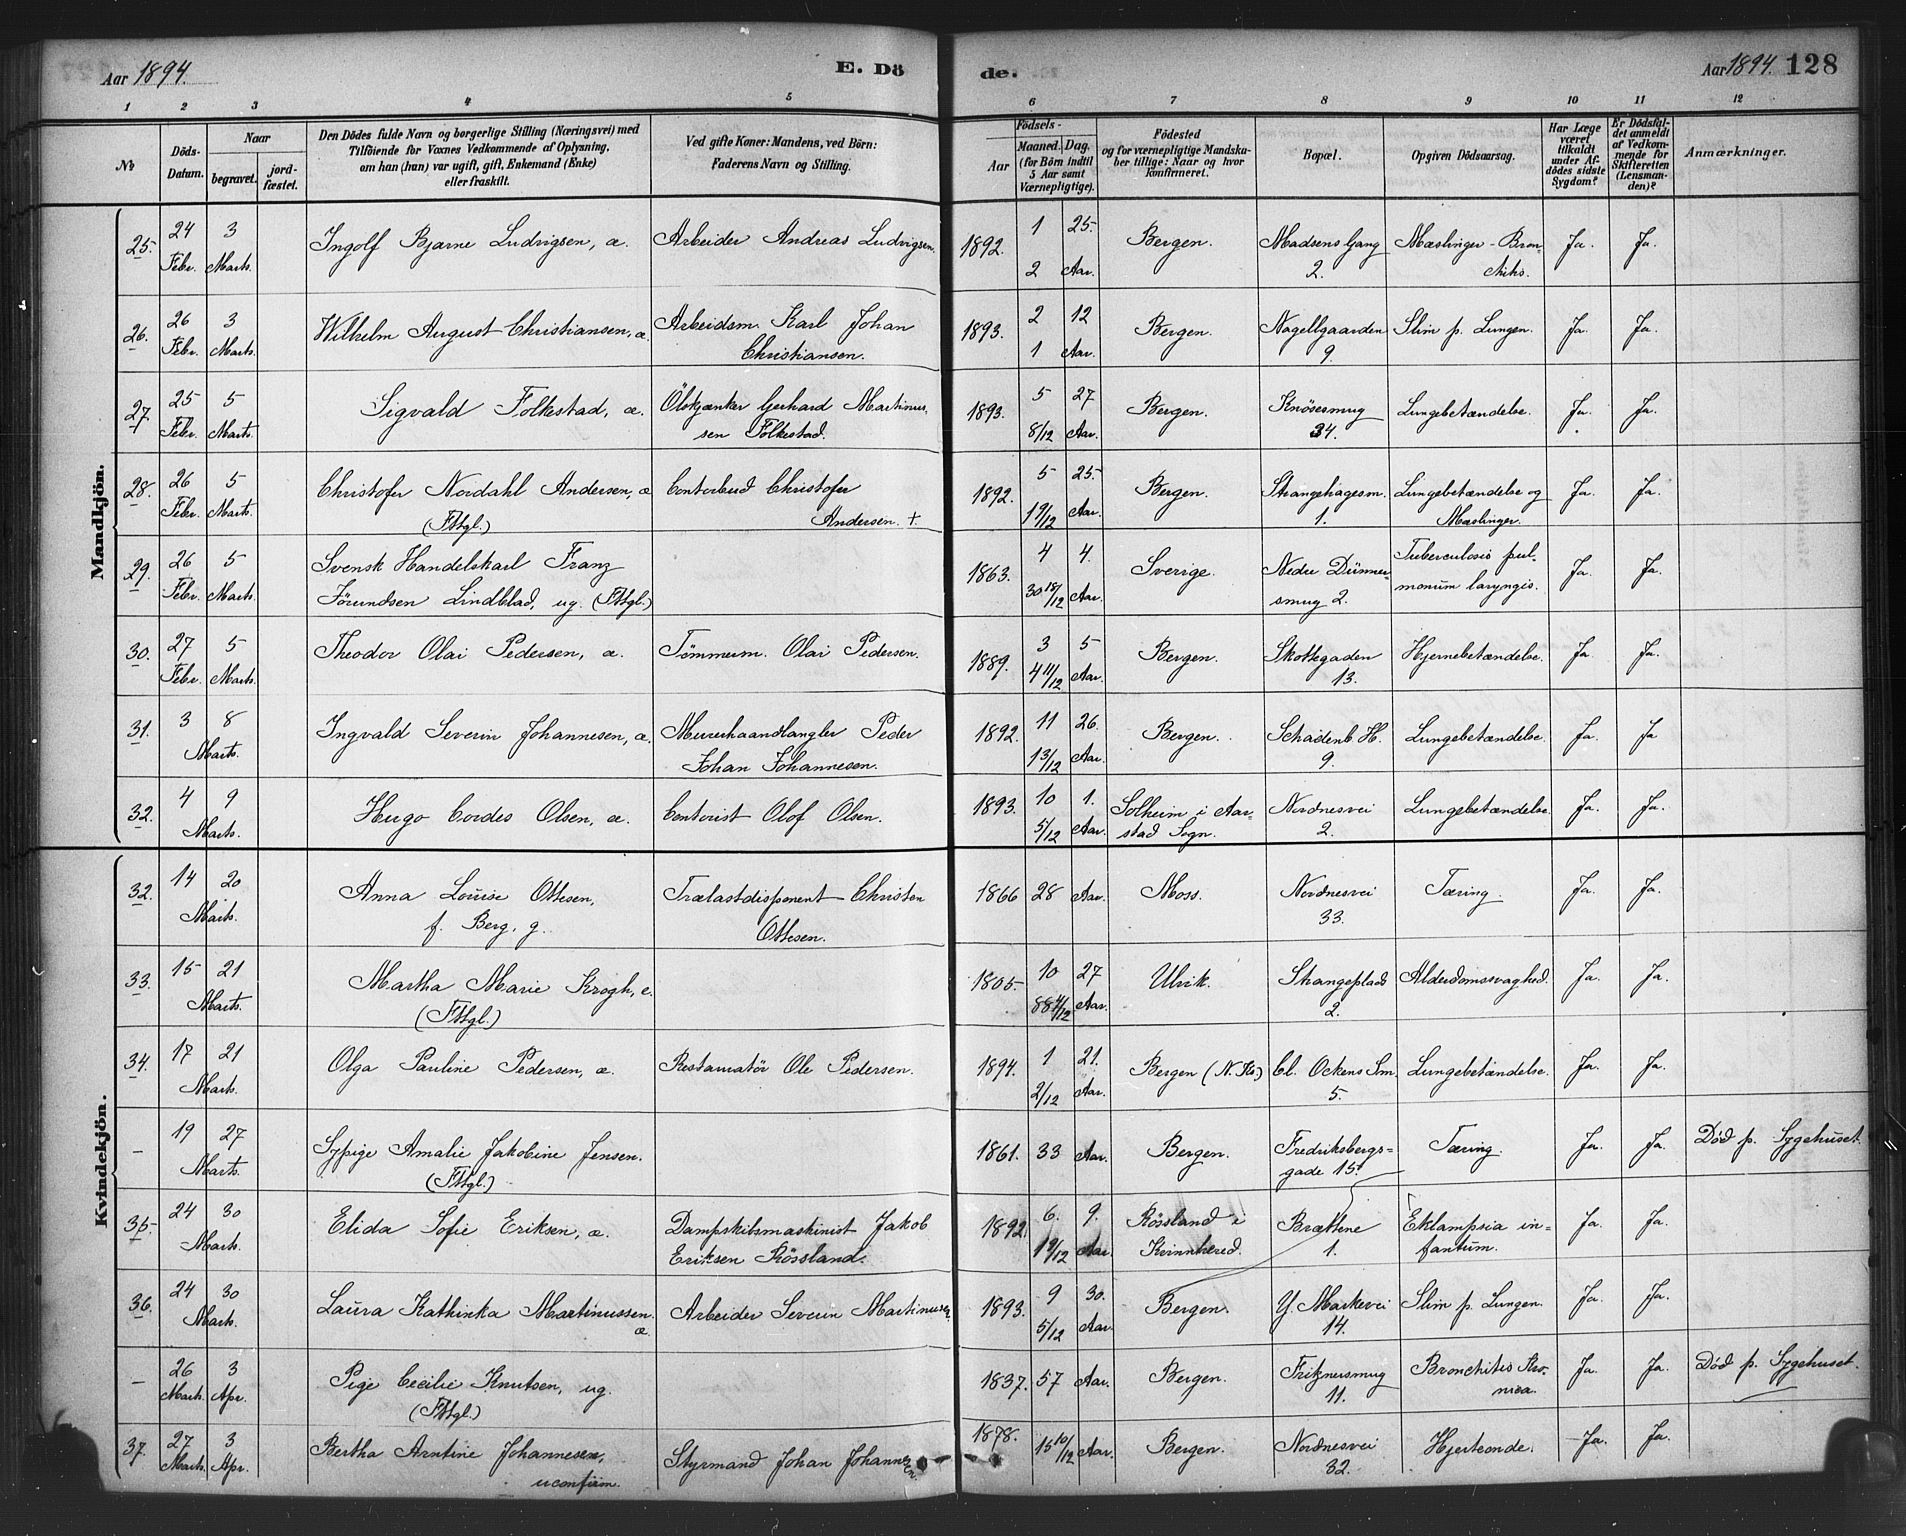 Aar 1894.
E. Dö
de.
Aar 1894. 128
1 2 3 4 5 6 7 8 9 10 11 12
№
Döds-
Datum.
Naar
begravet.
jord-
fæstet.
Den Dödes fulde Navn og borgerlige Stilling (Næringsvei) med
Tilföiende for Voxnes Vedkommende af Oplysning,
om han (hun) var ugift, gift, Enkemand (Enke)
eller fraskilt.
Ved gifte Koner: Mandens, ved Börn:
Faderens Navn og Stilling.
Födsels-
Aar
Maaned. Dag.
(for Börn indtil
5 Aar samt
Værnepligtige).
Födested
og for værnepligtige Mandska-
ber tillige: Naar og hvor
konfirmeret.
Bopæl.
Opgiven Dödsaarsag.
Har Læge
været
tilkaldt
under Af-
dödes sidste
Sygdom?
Er Dödsfal-
det anmeldt
af Vedkom-
mende for
Skifteretten
(Lensman-
den)?
Anmærkninger.
Mandkjön.
25. 24 3 Ingolf Bjarne Ludvigsen, æ. Arbeider Andreas Ludvigsen. 1892. 1 25. Bergen. Madsens Gang Mæslinger - Bron- Ja. Ja.
Febr. Marts. 2 Aar. 2. chitis.
26. 26 3 Wilhelm August Christiansen, æ. Arbeidsm. Karl Johan 1893. 2 12 Bergen. Nagellgaarden Slim p. Lungen. Ja. Ja.
Febr. Marts. Christiansen. 1 Aar. 9.
27. 25 5 Sigvald Folkestad, æ. Ölskjænker Gerhard Martinus- 1893. 5 27 Bergen. Knösesmug Lungebetændelse. Ja. Ja.
Febr. Marts. sen Folkestad. 8/12 Aar. 34.
28. 26 5 Christofer Nordahl Andersen, æ Contorbud Christofer 1892. 5 25. Bergen. Strangehagesm. Lungebetændelse og Ja. Ja.
Febr. Marts. (Fttgl.) Andersen. + 1 9/12 Aar. 1. Mæslinger.
29. 26 5 Svensk Handelskarl Franz 1863. 4 4. Sverige. Nedre Dünner- Tuberculosis pul- Ja. Ja.
Febr. Marts. Jörundsen Lindblad, ug. (Fttgl.) 30 10/12 Aar. smug 2. monum laryngis.
30. 27 5 Theodor Olai Pedersen, æ. Tömmerm. Olai Pedersen. 1889. 3 5 Bergen. Skottegaden Hjernebetændelse. Ja Ja.
Febr. Marts. 4 11/12 Aar. 13.
31. 3 8 Ingvald Severin Johannesen, æ. Murerhaandlangler Peder 1892. 11 26. Bergen. Schaidenb. H. Lungebetændelse. Ja. Ja
Marts. Johan Johannesen. 1 3/12 Aar. 9.
32. 4 9 Hugo Cordes Olsen, æ. Contorist Olof Olsen. 1893. 10 1. Solheim i Aar- Nordnesvei Lungebetændelse Ja. Ja.
Marts. 5/12 Aar. stad Sogn. 2.
Kvindekjön.
32. 14 20 Anna Louise Ottesen, Trælastdisponent Christen 1866 28 Aar. Moss. Nordnesvei Tæring. Ja. Ja.
Marts. f. Berg, g. Ottesen. 33.
33. 15 21 Martha Marie Krogh, e. 1805 10 27 Ulvik. Strangeplads Alderdomssvaghed. Ja. Ja.
Marts. (Fttgl.) 88 4/12 Aar. 2.
34. 17 21 Olga Pauline Pedersen, æ. Restauratör Ole Pedersen. 1894. 1 21. Bergen (N. K.) Cl. Ockens Sm. Lungebetændelse. Ja. Ja.
Marts. 2/12 Aar. 5.
- 19 27 Sypige Amalie Jakobine Jensen. 1861. 33 Aar. Bergen. Fredriksbergs- Tæring. Ja. Ja. Död p. Sygehuset.
Marts. (Fttgl.) gade 15.
35. 24 30 Elida Sofie Eriksen, æ. Dampskibsmaskinist Jakob 1892. 6. 9. Rössland i Brættene Eklampsia in- Ja. Ja.
Marts. Eriksen Rössland. 1 9/12 Aar. Kvinnherred. 1. fantum.
36. 24 30 Laura Kathinka Martinussen. Arbeider Severin Martinussen. 1893. 9 30. Bergen. Y. Markevei Slim p. Lungen. Ja. Ja.
Marts. æ. 5/12 Aar. 14.
- 26 3 Pige Cecilie Knutsen, ug. 1837. 57 Aar. Bergen. Friznersmug Bronchitis kro- Ja. Ja. Död p. Sygehuset.
Marts. Apr. (Fttgl.) 11. nica.
37. 27 3 Bertha Arntine Johannesen, Styrmand Johan Johannesen. 1878. 15 10/12 Aar. Bergen. Nordnesvei Hjerteonde. Ja. Ja.
Marts. Apr. uconfirm. 32.